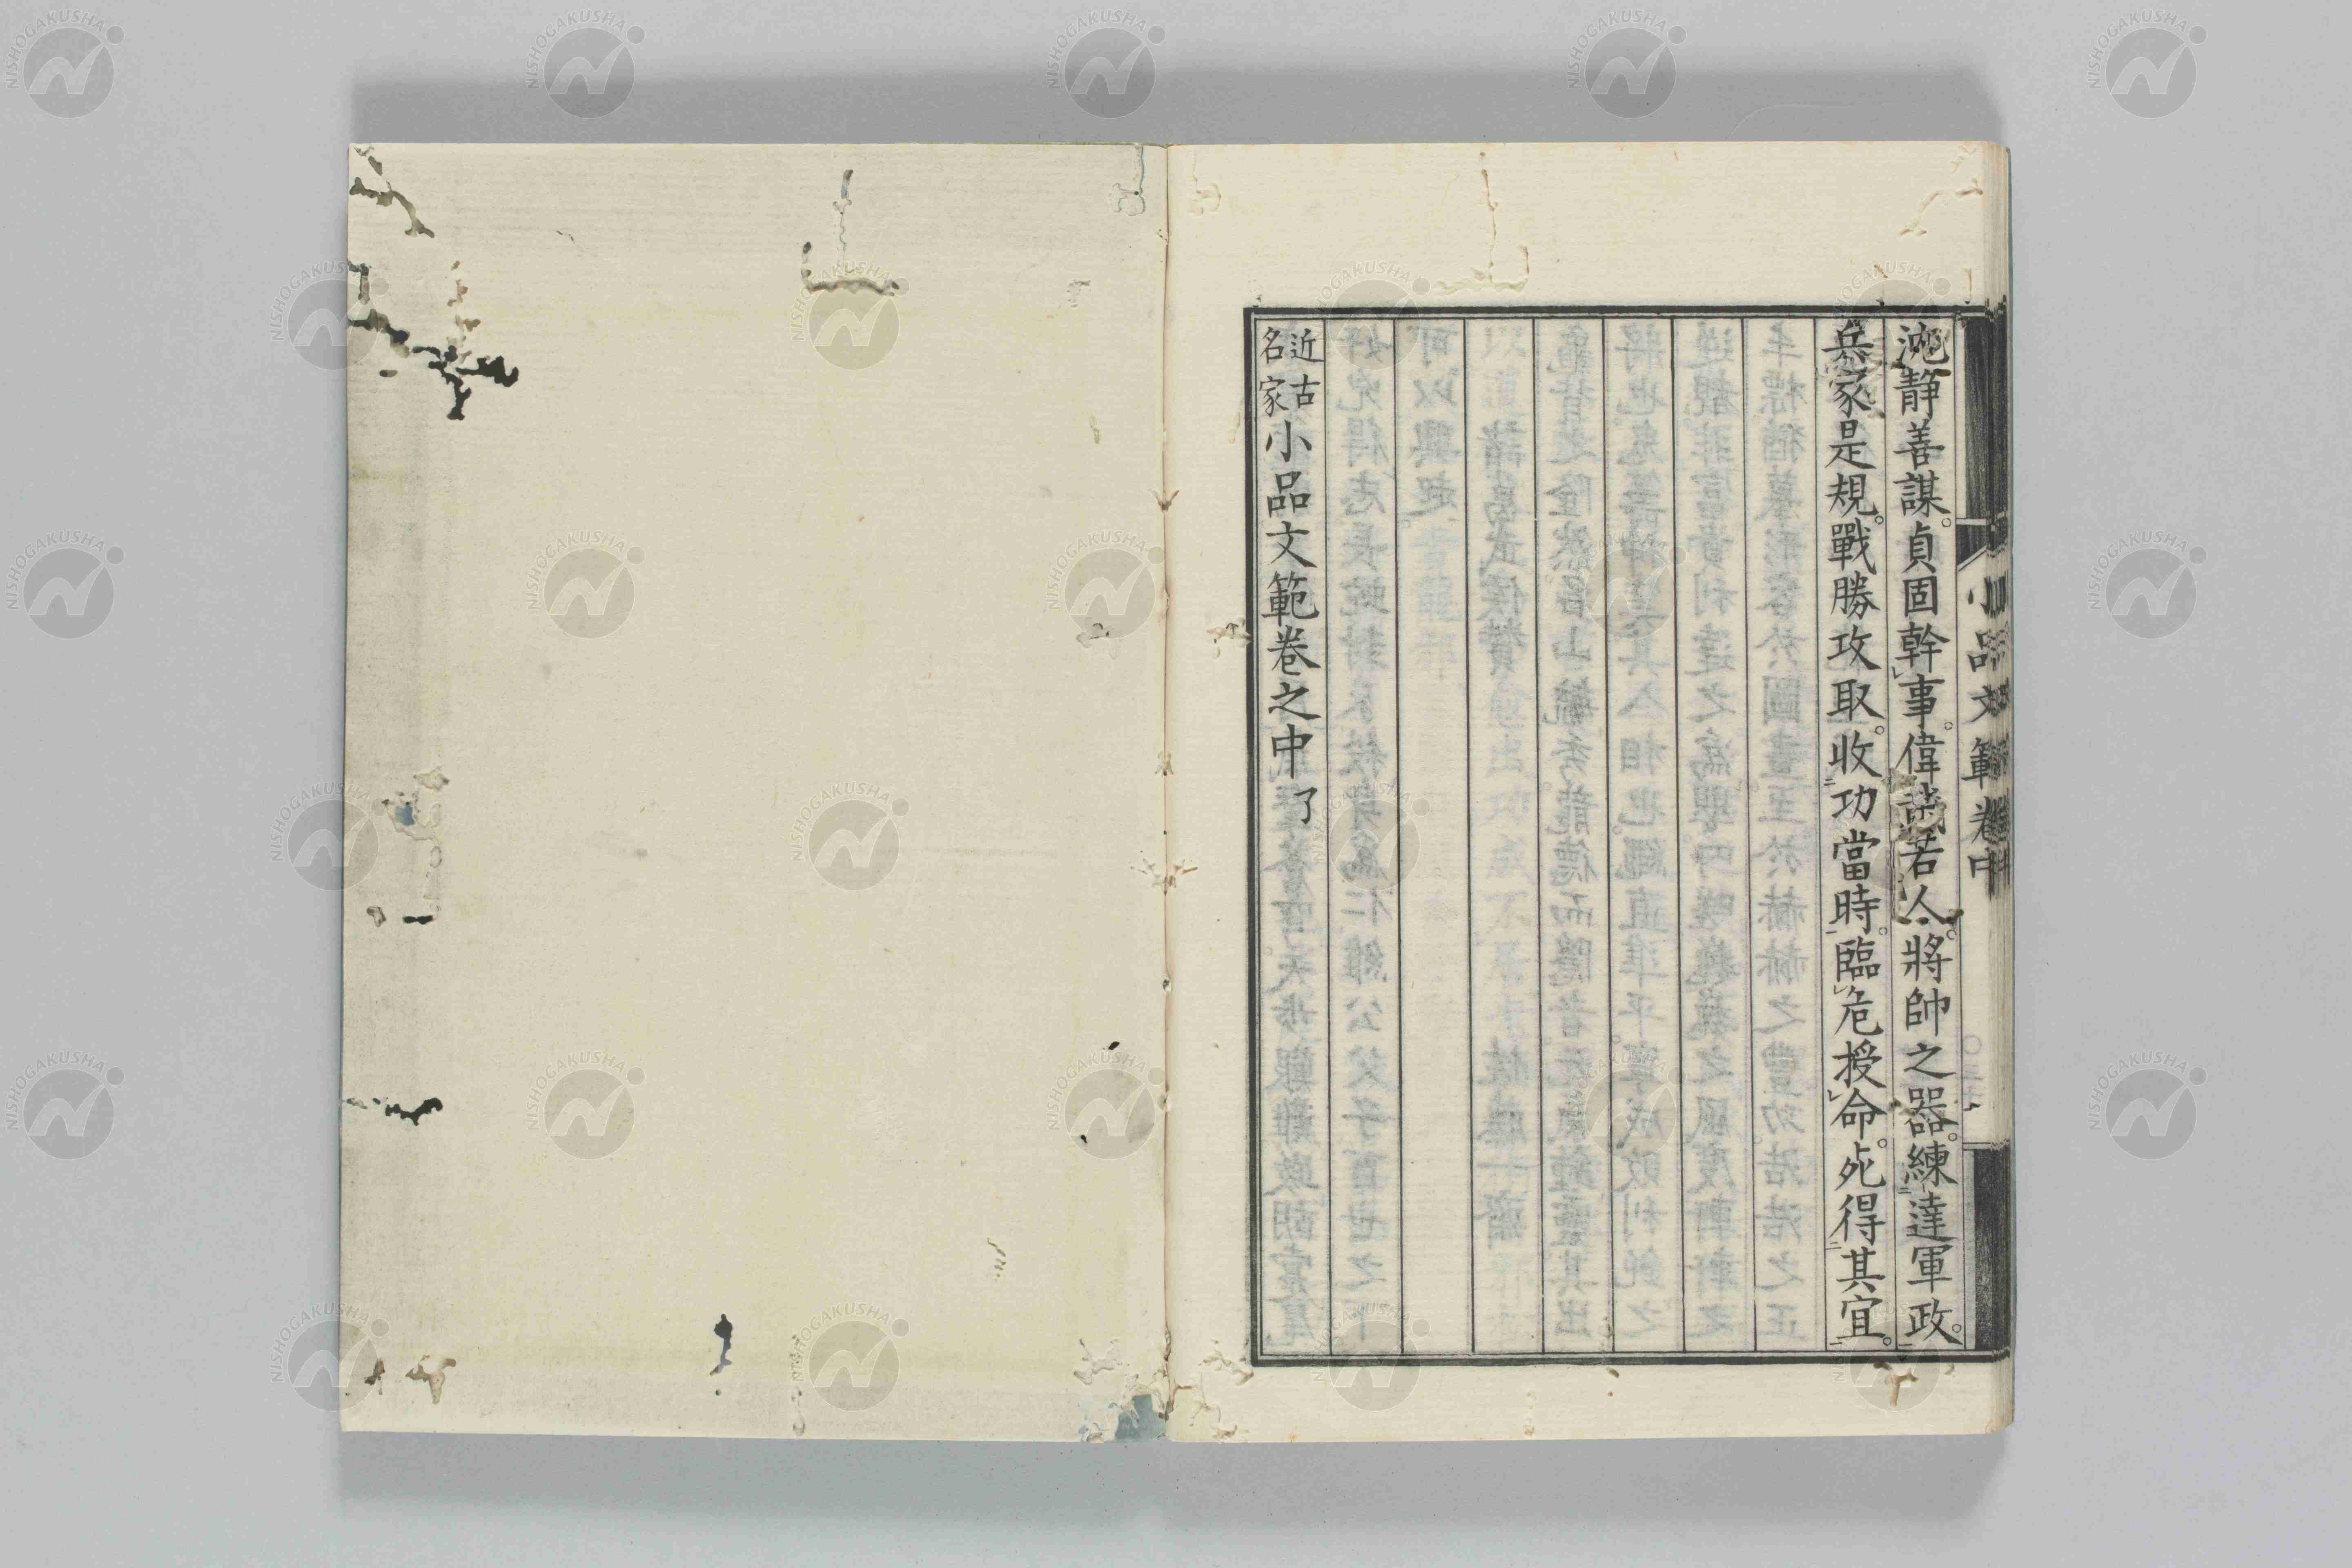 靜善謀。貞固幹事。偉哉若人。將帥之器。練達軍政。
兵家是規。戰勝攻取。收功當時。臨危授命。死得其宜。
近古名家小品文範卷之中 了
小品文範 卷中
NISHOGAKUSHA